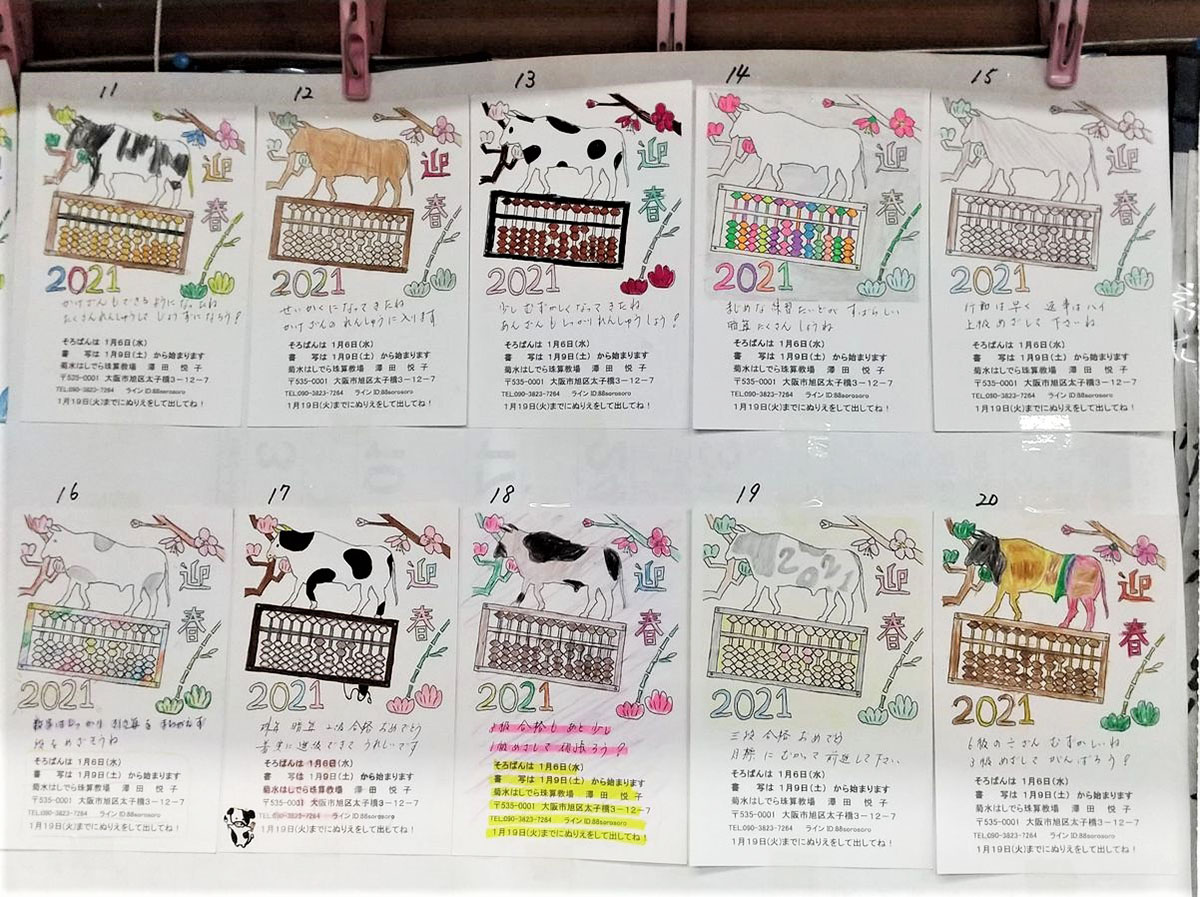 11
迎
春
2021
かけざんもできるようになったね
たくさんれんしゅうして じょうずになろう!
そろばんは 1月6日(水)
書　写は 1月9日(土) から始まります
菊水はしでら珠算教場　澤田　悦子
〒535-0001 大阪市旭区太子橋3−12−7
TEL.090-3823-7264　ライン ID:88sorosoro
1月19日(火)までにぬりえをして出してね!
12
迎
春
2021
せいかくになってきたね
かけざんの れんしゅうに入ります
そろばんは 1月6日(水)
書　写は 1月9日(土) から始まります
菊水はしでら珠算教場　澤田　悦子
〒535-0001 大阪市旭区太子橋3−12−7
TEL.090-3823-7264　ライン ID:88sorosoro
1月19日(火)までにぬりえをして出してね!
13
迎
春
2021
少し むずかしくなってきたね
あんざんもしっかりれんしゅうしよう!
そろばんは 1月6日(水)
書　写は 1月9日(土) から始まります
菊水はしでら珠算教場　澤田　悦子
〒535-0001 大阪市旭区太子橋3−12−7
TEL.090-3823-7264　ライン ID:88sorosoro
1月19日(火)までにぬりえをして出してね!
14
迎
春
2021
まじめな練習たいどが すばらしい
暗算たくさん しようね
そろばんは 1月6日(水)
書　写は 1月9日(土) から始まります
菊水はしでら珠算教場　澤田　悦子
〒535-0001 大阪市旭区太子橋3−12−7
TEL.090-3823-7264　ライン ID:88sorosoro
1月19日(火)までにぬりえをして出してね!
15
迎
春
2021
行動は早く 返事はハイ
上級めざして 下さいね
そろばんは 1月6日(水)
書　写は 1月9日(土) から始まります
菊水はしでら珠算教場　澤田　悦子
〒535-0001 大阪市旭区太子橋3−12−7
TEL.090-3823-7264　ライン ID:88sorosoro
1月19日(火)までにぬりえをして出してね!
16
迎
春
2021
段をめざそうね
そろばんは 1月6日(水)
書　写は 1月9日(土) から始まります
菊水はしでら珠算教場　澤田　悦子
〒535-0001 大阪市旭区太子橋3−12−7
TEL.090-3823-7264　ライン ID:88sorosoro
1月19日(火)までにぬりえをして出してね!
17
迎
春
2021
昨年 暗算 2級合格 おめでとう
着実に進級できて うれしいです
そろばんは 1月6日(水)
書　写は 1月9日(土) から始まります
菊水はしでら珠算教場　澤田　悦子
〒535-0001 大阪市旭区太子橋3−12−7
TEL.090-3823-7264　ライン ID:88sorosoro
1月19日(火)までにぬりえをして出してね!
18
迎
春
2021
級 合格も あと少し
1級めざして 頑張ろう!
そろばんは 1月6日(水)
書　写は 1月9日(土) から始まります
菊水はしでら珠算教場　澤田　悦子
〒535-0001 大阪市旭区太子橋3−12−7
TEL.090-3823-7264　ライン ID:88sorosoro
1月19日(火)までにぬりえをして出してね!
19
2021
迎
春
2021
三段 合格 おめでとう
目標 にむかって 前進して下さい
そろばんは 1月6日(水)
書　写は 1月9日(土) から始まります
菊水はしでら珠算教場　澤田　悦子
〒535-0001 大阪市旭区太子橋3−12−7
TEL.090-3823-7264　ライン ID:88sorosoro
1月19日(火)までにぬりえをして出してね!
20
迎
春
2021
6級のさざん むずかしいね
3級めざして がんばろう!
そろばんは 1月6日(水)
書　写は 1月9日(土) から始まります
菊水はしでら珠算教場　澤田　悦子
〒535-0001 大阪市旭区太子橋3−12−7
TEL.090-3823-7264　ライン ID:88sorosoro
1月19日(火)までにぬりえをして出してね!